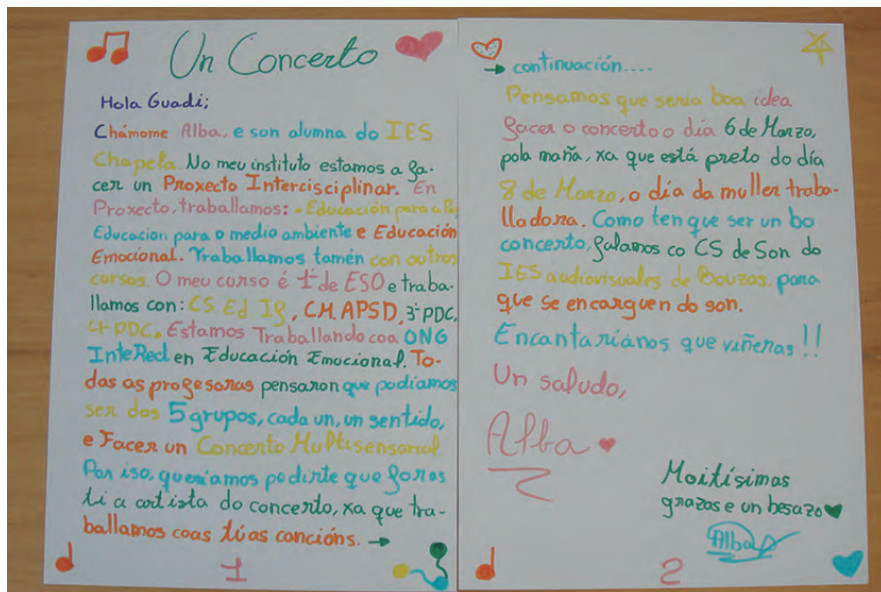 Un Concerto
Hola Guadi;
Chámome Alba, e son alumna do IES
Chapela. No meu instituto estamos a fa-
cer un Proxecto Intercisciplinar. En
Proxecto, traballamos: • Educación para a Paz
Educacion para o medio ambiente e Educación
Emocional. Traballamos tamén con outros
cursos. O meu curso é 1º de ESO e traba-
llamos con: CS Ed. Ig, CM. APSD, 3º PDC,
4º PDC. Estamos Traballando coa ONG
InteRed en Educación Emocional. To-
das as profesoras pensaron que podiamos
ser dos 5 grupos, cada un, un sentido,
e Facer un Concerto Multisensorial
Por iso, queriamos pedirte que foras
ti a artista do concerto, xa que tra-
ballamos coas túas cancións. →
1
→ continuación....
Pensamos que sería boa idea
facer o concerto o día 6 de Marzo,
pola mañá, xa que está preto do día
8 de Marzo, o día da muller traba-
lladora. Como ten que ser un bo
concerto, falamos co CS de Son do
IES audiovisuales de Bouzas, para
que se encarguen do son.
Encantaríanos que viñeras!!
Un saludo,
Alba
Moitísimas
grazas e un besazo
Alba
2